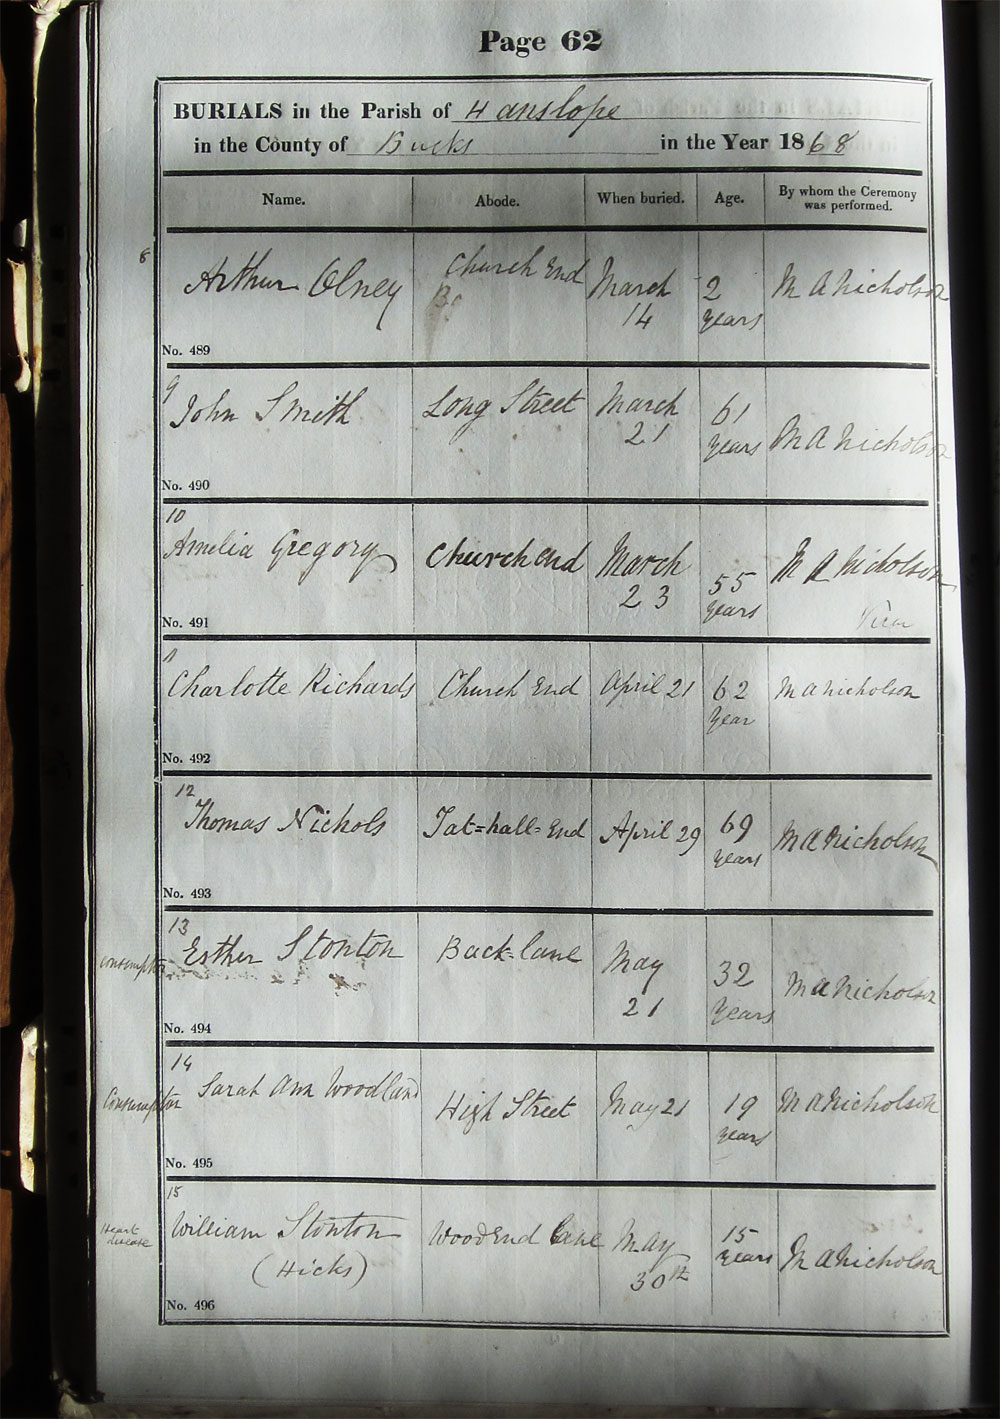 Page 62
BURIALS in the Parish of Hanslope
in the County of Bucks in the Year 1868
Name. Abode. When buried. Age. By whom the Ceremony was performed.
8
Arthur Olney Church End March 14 2 years M A Nicholson
No. 489
9
John Smith Long Street March 21 61 years M A Nicholson
No. 490
10
Amelia Gregory Church End March 23 55 years M A Nicholson
No. 491
Charlotte Richards Church End April 21 62 year M A Nicholson
No. 492
12
Thomas Nichols Tat=hall=End April 29 69 years M A Nicholson
No. 493
13
Consumption Esther Stonton Back=lane May 21 32 years M A Nicholson
No. 494
14
Consumption Sarah Ann Woodland High Street May 21 19 years M A Nicholson
No. 495
15
Heart disease William Stonton Woodend Lane May 30th 15 years M A Nicholson
(Hicks)
No. 496